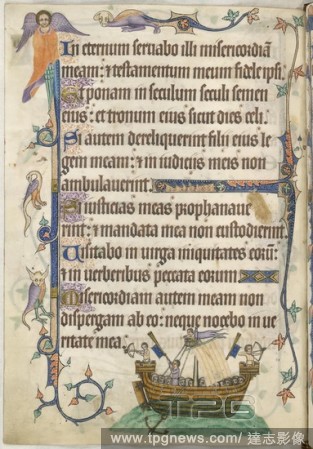 In eternum seruabo illi misericordiã
meam: ⁊ testamentum meum fidele ipsi.
Et ponam in seculum seculi semen
eius: et tronum eius sicut dies celi.
Si autem dereliquerint filii eius le
gem meam: ⁊ in iudiciis meis non
ambulauerint.
Si iusticias meas prophanaue
rint: ⁊ mandata mea non custodierint.
Uisitabo in uirga iniquitates eorũ:
⁊ in uerberibus peccata eorum.
Misericordiam autem meam non
dispergam ab eo: neque nocebo in ue
ritate mea.
TPG
www.tpgnews.com/ 達志影像